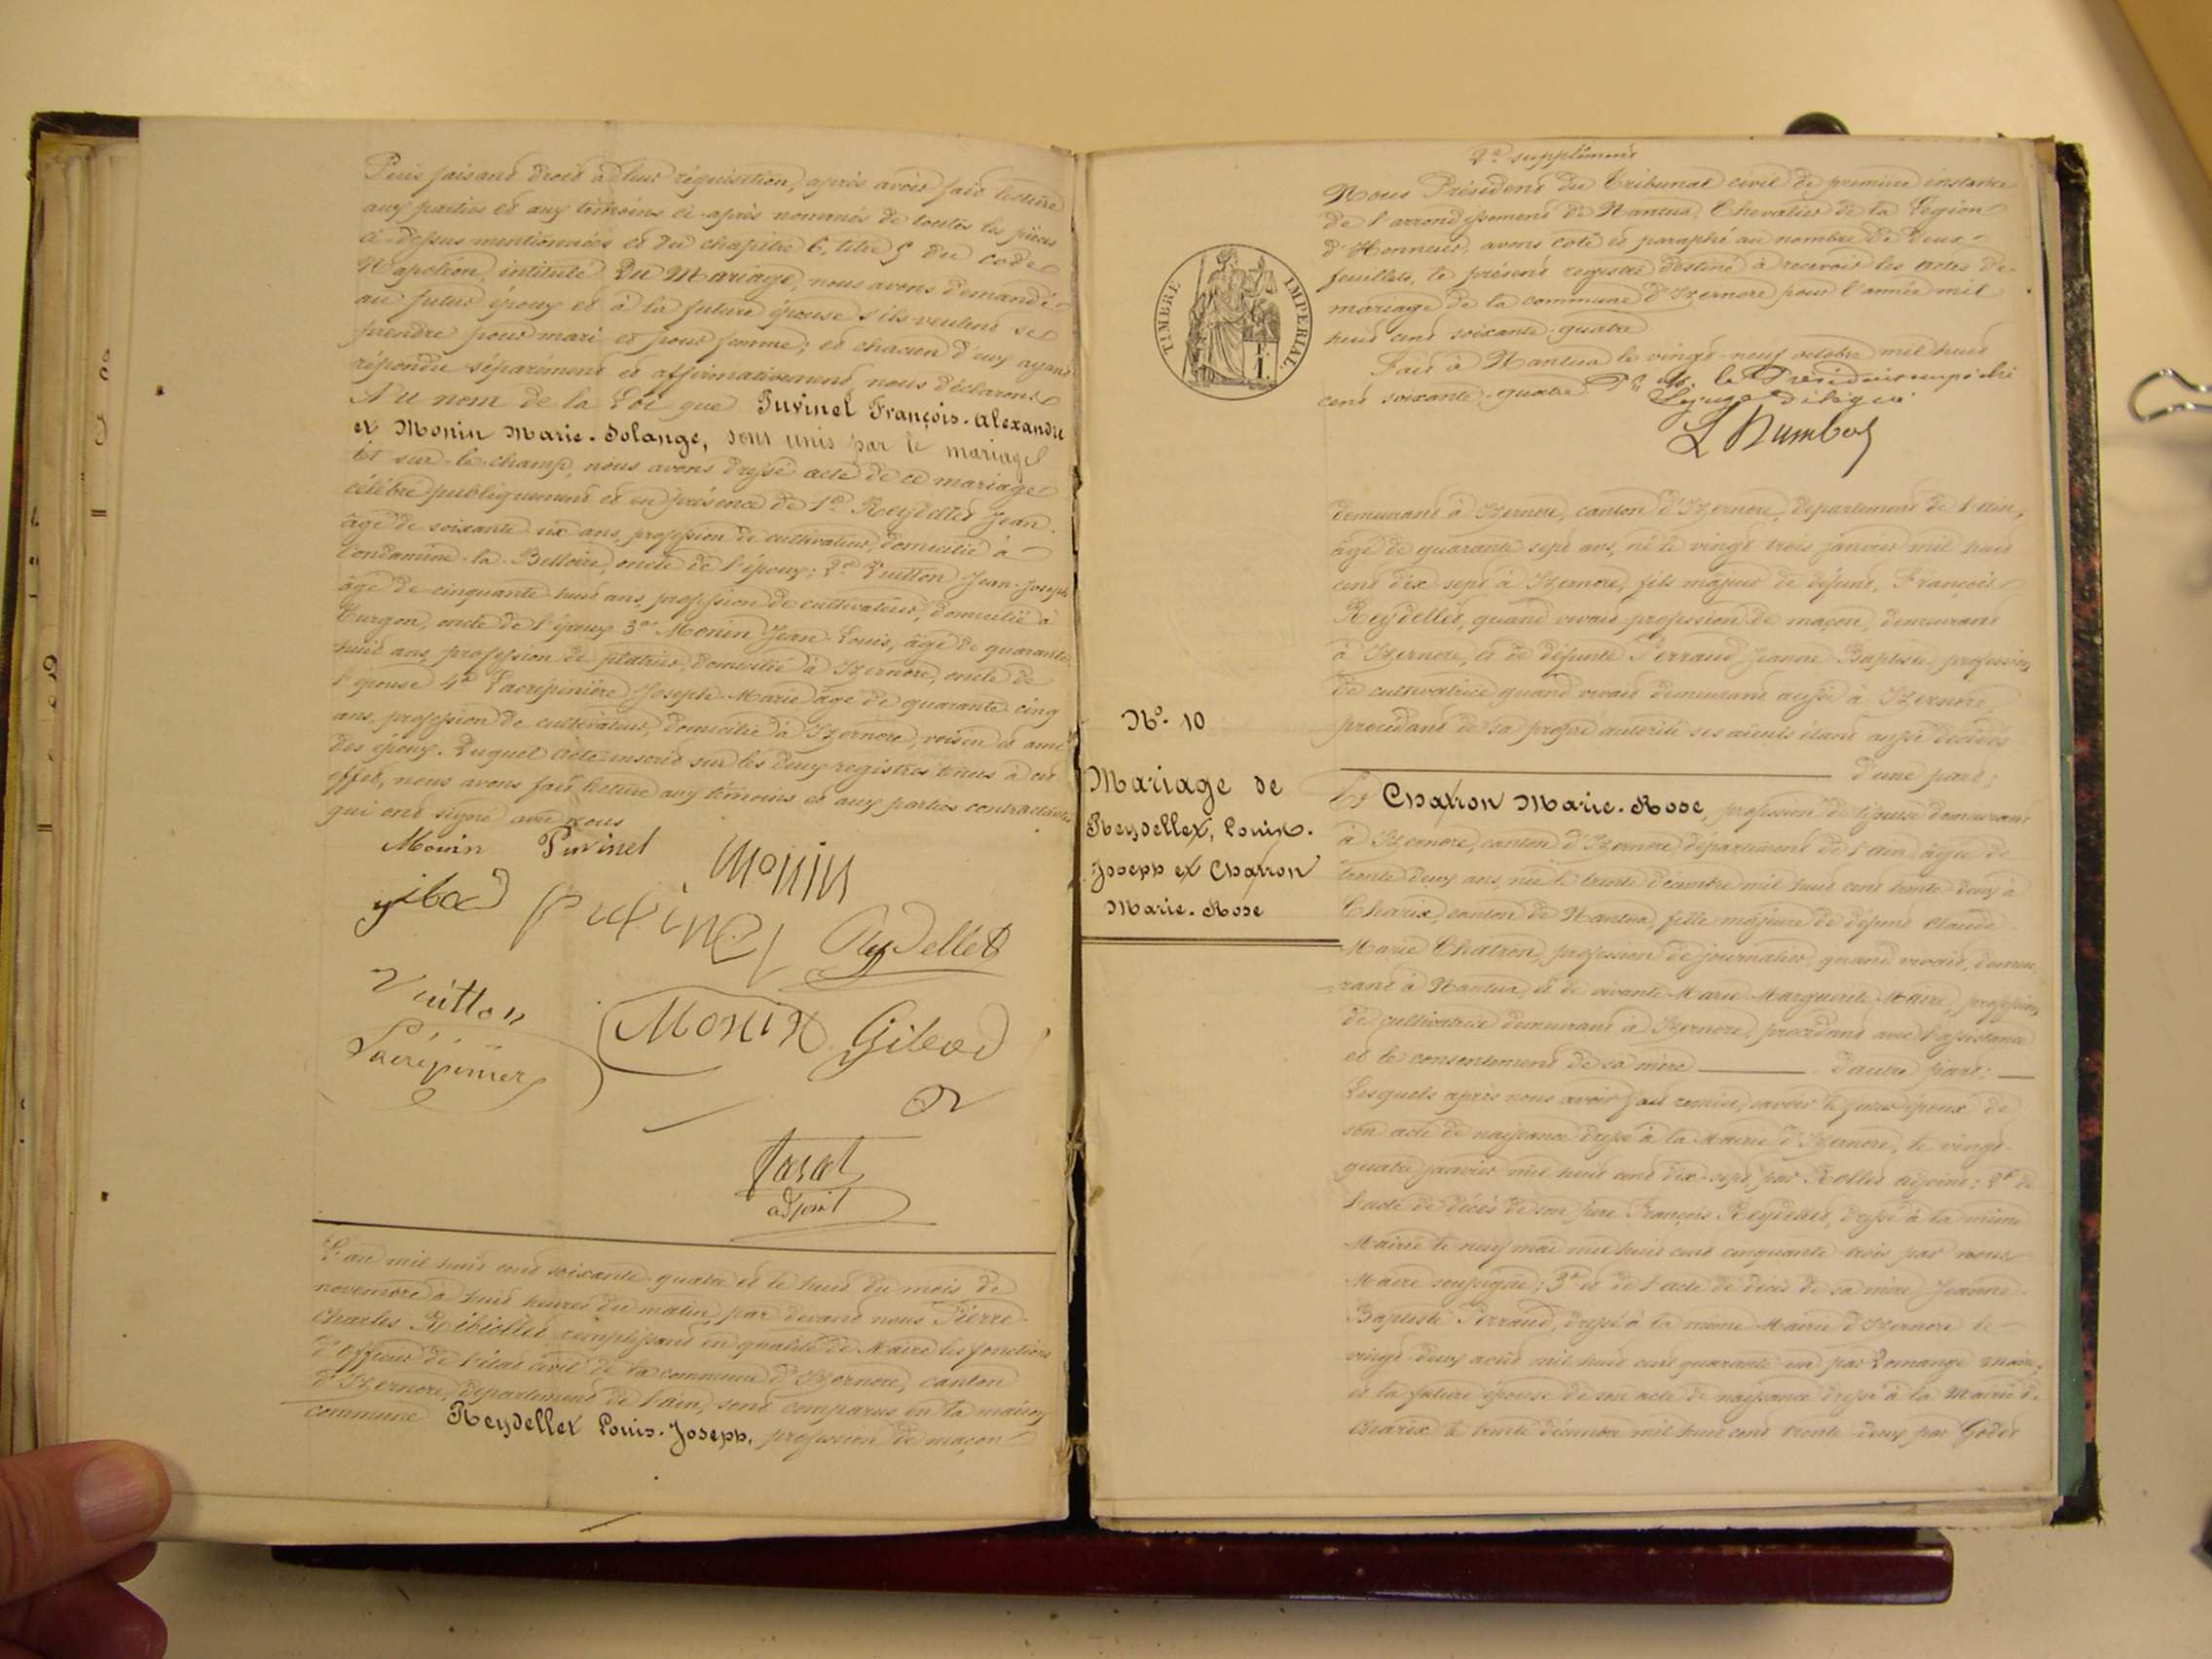 Puis faisant droit à leur réquisition, après avoir fait lecture
aux parties et aux témoins ci-après nommés de toutes les pièces
ci-dessus mentionnées et du chapitre 6, titre 5 du code
Napoléon, intitulé Du Mariage, nous avons demandé
au futur époux et à la future épouse s'ils veulent se
prendre pour mari et pour femme; et chacun d'eux ayant
répondu séparément et affirmativement, nous déclarons
Au nom de la Loi que Juvinel François-Alexandre
et Monin Marie-Solange, sont unis par le mariage
Et sur-le-champ, nous avons dressé acte de ce mariage
célébré publiquement et en présence de 1º Reydellet Jean
âgé de soixante six ans, profession de cultivateur, domicilié à
Condamine-la-Belloire, oncle de l'époux; 2º Vuitton Jean-Joseph
âgé de cinquante-huit ans, profession de cultivateur, domicilié à
Turgon, oncle de l'époux 3º Monin Jean-Louis, âgé de quarante
huit ans, profession de plâtrier, domicilié à Izernore, oncle de
l'épouse 4º Lacrépinière Joseph-Marie âgé de quarante cinq
ans, profession de cultivateur, domicilié à Izernore, voisin et ami
des époux. Duquel acte inscrit sur les deux registres tenus à cet
effet, nous avons fait lecture aux témoins et aux parties contractantes
qui ont signé avec nous
Monin Puvinel Monin
Reydellet
Vuitton Monin Gibod
adjoint
L'an mil huit cent soixante-quatre et le huit du mois de
novembre à huit heures du matin, par devant nous Pierre-
Charles Ribiollet remplissant en qualité de Maire les fonctions
d'officier de l'état civil de la commune d'Izernore, canton
d'Izernore, département de l'ain, sont comparus en la maison
commune Reydellet Louis-Joseph, profession de maçon
2º supplément
Nous Président du Tribunal civil de première instance
de l'arrondissement de Nantua, Chevalier de la Légion
d'Honneur, avons coté et paraphé au nombre de deux
feuillets, le présent registre destiné à recevoir les actes de
mariage de la commune d'Izernore pour l'année mil
huit cent soixante-quatre
Fait à Nantua le vingt-neuf octobre mil huit
cent soixante-quatre Pr M. le Président empêché
Le juge délégué
TIMBRE IMPERIAL.
1 F.
demeurant à Izernore, canton d'Izernore, département de l'ain,
âgé de quarante sept ans, né le vingt trois janvier mil huit
cent dix sept à Izernore, fils majeur de défunt, François
Reydellet, quand vivait profession de maçon, demeurant
à Izernore, et de défunte Perraud Jeanne-Baptiste, profession
de cultivatrice quand vivait demeurant aussi à Izernore,
procédant de sa propre autorité ses aïeuls étant aussi décédés
d'une part;
Nº. 10
Mariage de
Reydellet, Louis-
Joseph et Chatron
Marie-Rose
Et Chatron Marie-Rose, profession de demeurant
à Izernore, canton d'Izernore, département de l'ain âgée de
trente deux ans, née le trente décembre mil huit cent trente deux à
Charix, canton de Nantua, fille majeure de défunt Claude-
Marie Chatron, profession de journalier, quand vivait, demeu
rant à Nantua, et de vivante Marie Marguerite Maire, profession
de cultivatrice demeurant à Izernore, procédant avec l'assistance
et le consentement de sa mère d'autre part;
Lesquels après nous avoir fait remise, savoir: le futur époux de
son acte de naissance dressé à la Mairie d'Izernore, le vingt-
quatre janvier mil huit cent dix-sept, par Rollet adjoint; 2º de
l'acte de décès de son père François Reydellet, dressé à la même
Mairie le neuf mai mil huit cent cinquante trois par nous
Maire soussigné; 3º et de l'acte de décès de sa mère Jeanne-
Baptiste Perraud, dressé à la même Mairie d'Izernore le
vingt-deux août mil huit cent quarante un par Domange maire,
et la future épouse de son acte de naissance dressé à la Mairie de
Charix le trente décembre mil huit cent trente-deux par Godet